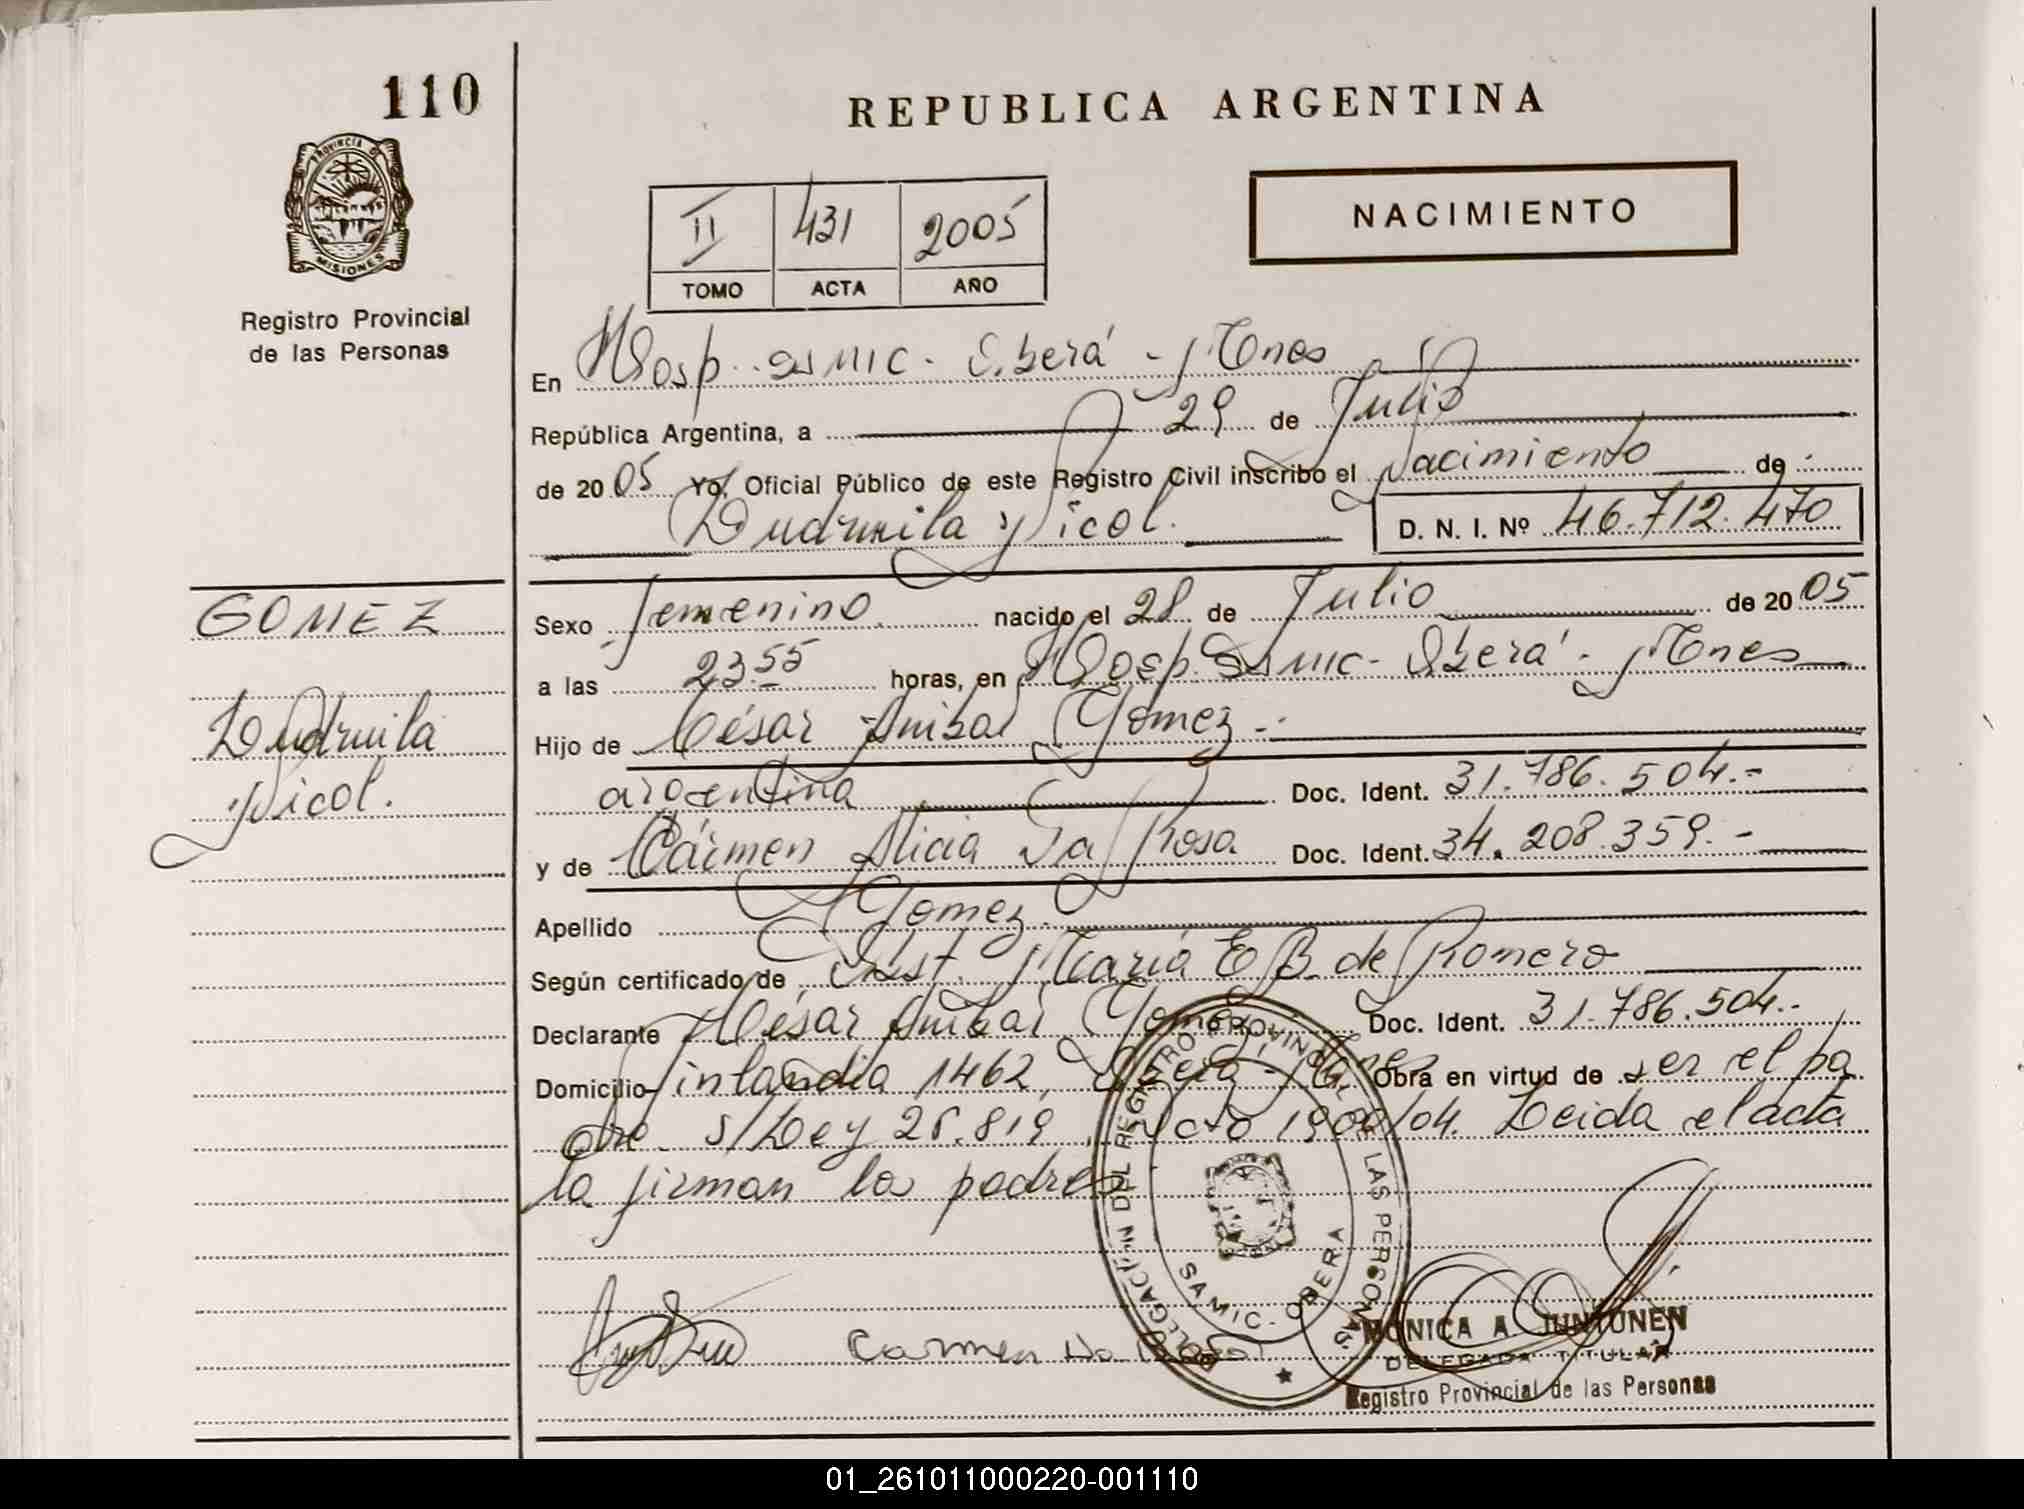 110
REPUBLICA ARGENTINA
PROVINCIA DE
MISIONES
Registro Provincial
de las Personas
NACIMIENTO
II 431 2005
TOMO ACTA AÑO
En Hosp. SAMIC - Oberá - Mnes
República Argentina, a 29 de Julio
de 2005 Yo, Oficial Público de este Registro Civil inscribo el Nacimiento de
Ludmila Nicol. D. N. I. Nº 46.712.470
GOMEZ
Ludmila
Nicol.
Sexo femenino nacido el 28 de Julio de 2005
a las 23.55 horas, en Hosp. SAMIC - Oberá - Mnes
Hijo de César Anibal Gomez.-
argentina Doc. Ident. 31.786.504.-
y de Cármen Alicia Da Rosa Doc. Ident. 34.208.359.-
Apellido Gomez.
Según certificado de Obst. María E B. de Romero
Declarante César Anibal Gomez Doc. Ident. 31.786.504.-
Domicilio Finlandia 1462, Oberá - Mnes Obra en virtud de ser el pa
dre. s/Ley 25.819, Dcto 1900/04. Leida el acta
la firman los padres
DELEGACIÓN DEL REGISTRO PROVINCIAL DE LAS PERSONAS
SAMIC - OBERA
Carmen Da Rosa
MONICA A. JUNTUNEN
DELEGADA TITULAR
Registro Provincial de las Personas
01_261011000220-001110